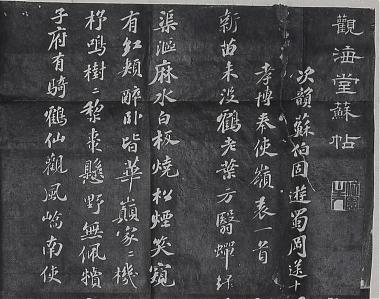 觀海堂蘇帖
次韻蘇伯固遊蜀岡送
孝博奉使嶺表一首
新苗未没鶴老葉方翳蟬綠
渠漚麻水白板燒松煙笑窺
有紅頰醉卧皆華巔家〻機
杼鳴樹〻黎棗懸野無佩犢
子府有騎鶴仙觀風嶠南使